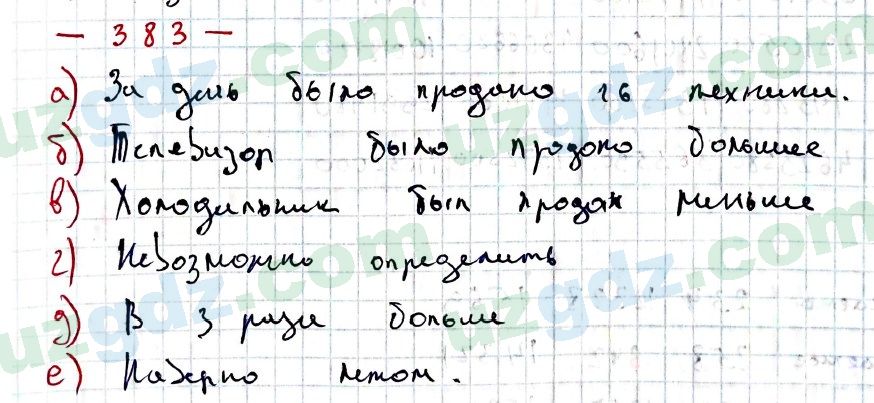 — 383 —
а) За день было продано 16 техники.
б) Телевизор было продоно большее
в) Холодильник был продан меньше
г) Невозможно определить
д) В 3 раза больше
е) Наверно летом.
uzgdz.com